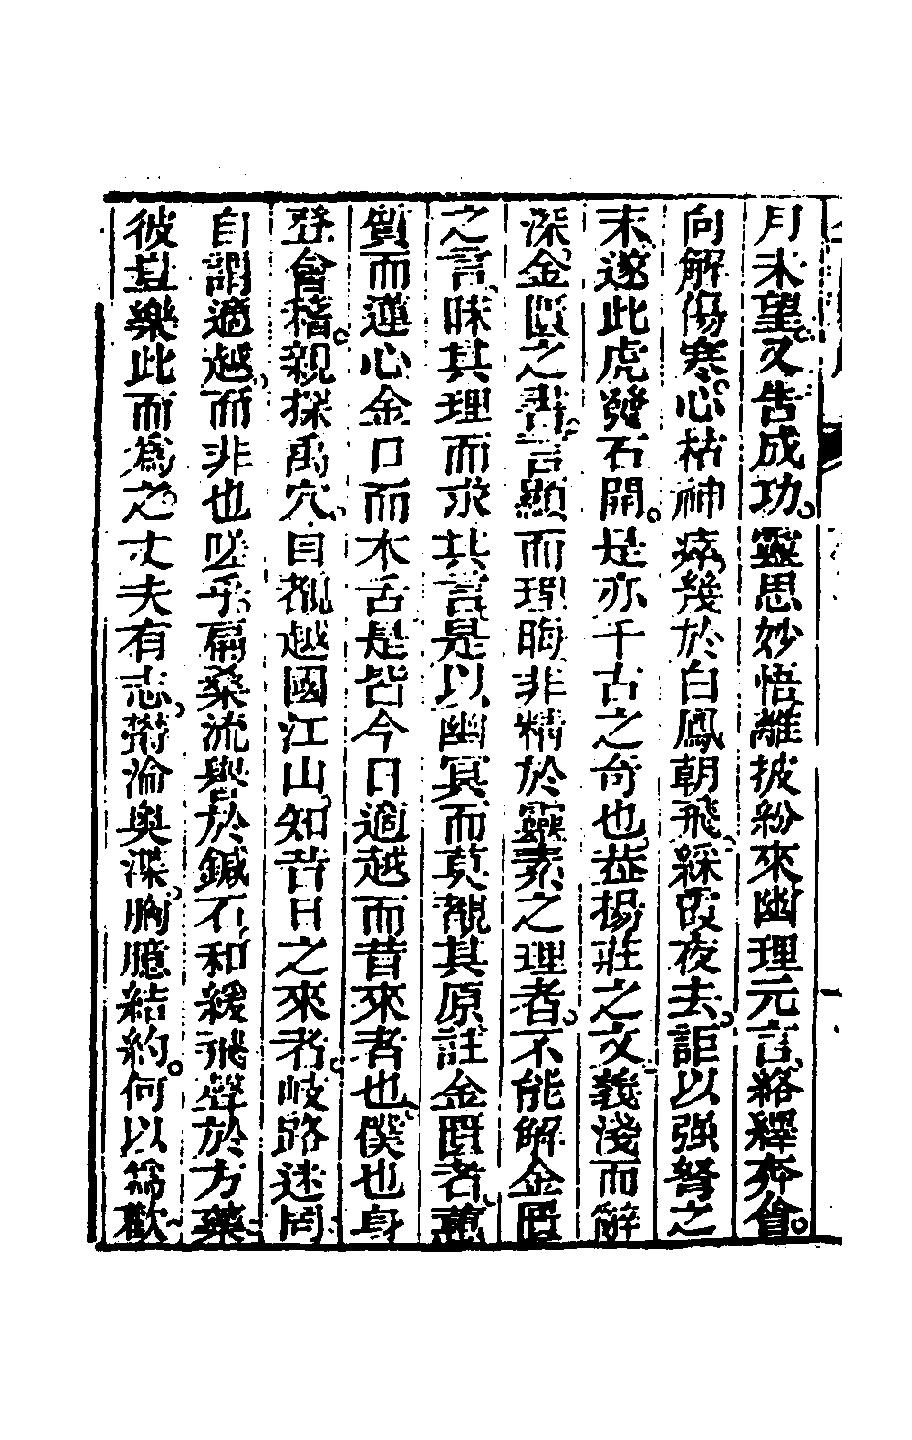 月未望又告成功靈思妙悟離披紛來幽理元言絡釋奔會
向解傷寒心枯神瘁幾於白鳳朝飛綵霞夜去詎以强弩之
末遂此虎發石開是亦千古之奇也葢揚莊之文義淺而辭
深金匱之書言顯而理晦非精於靈素之理者不能解金匱
之言味其理而求其言是以幽冥而莫覩其原註金匱者蕙
質而蓮心金口而木舌是皆今日適越而昔來者也僕也身
登會稽親探禹穴目覩越國江山知昔日之來者岐路迷罔
自謂適越而非也嗟乎扁桑流譽於鍼石和緩飛聲於方藥
彼豈樂此而爲之丈夫有志鬱淪奧渫胸臆結約何以爲歡